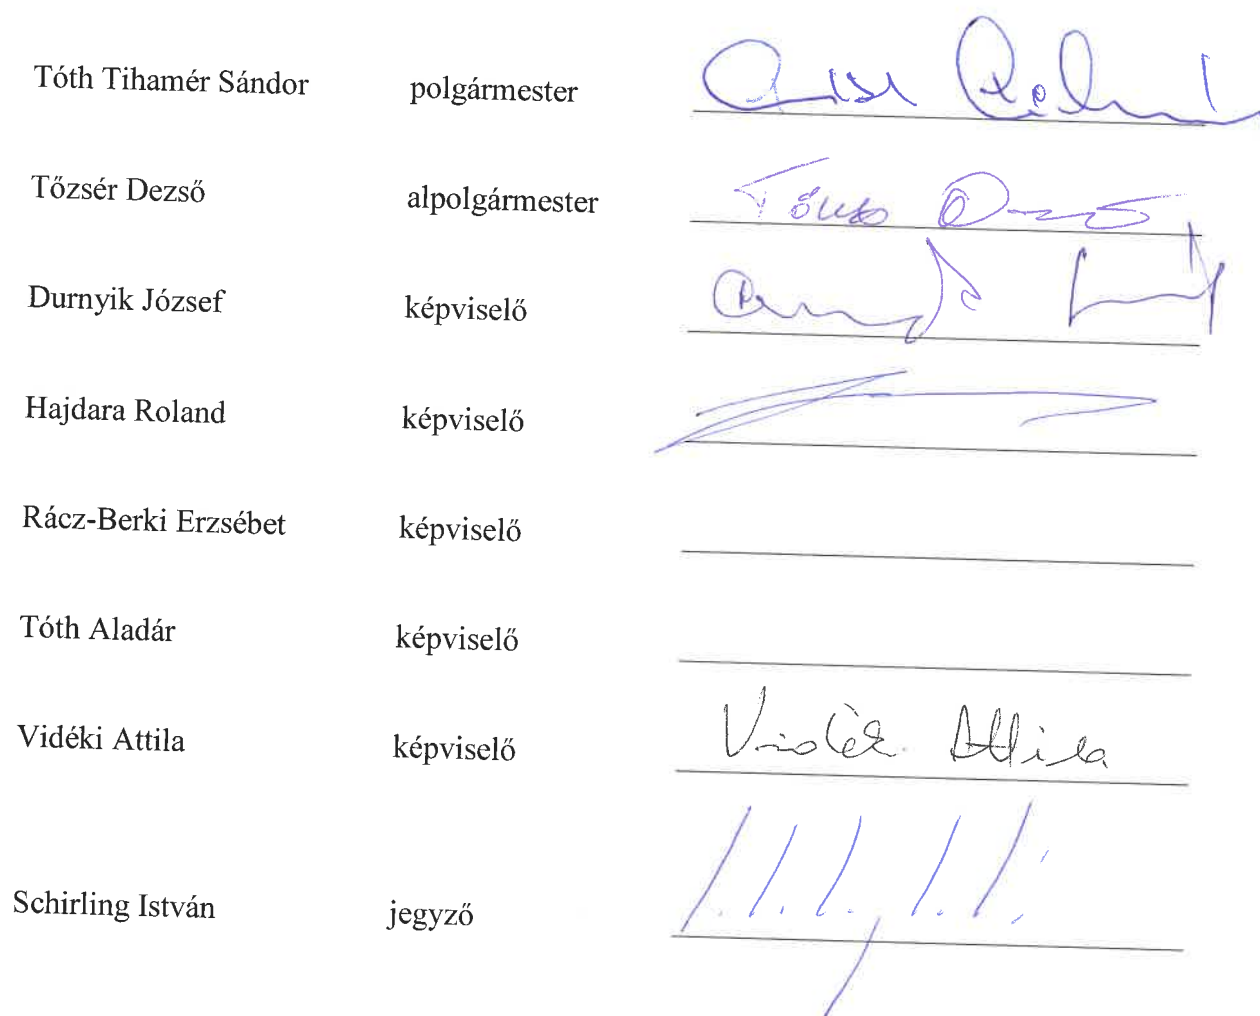 Tóth Tihamér Sándor polgármester
Tőzsér Dezső alpolgármester
Durnyik József képviselő
Hajdara Roland képviselő
Rácz-Berki Erzsébet képviselő
Tóth Aladár képviselő
Vidéki Attila képviselő Attila
Schirling István jegyző